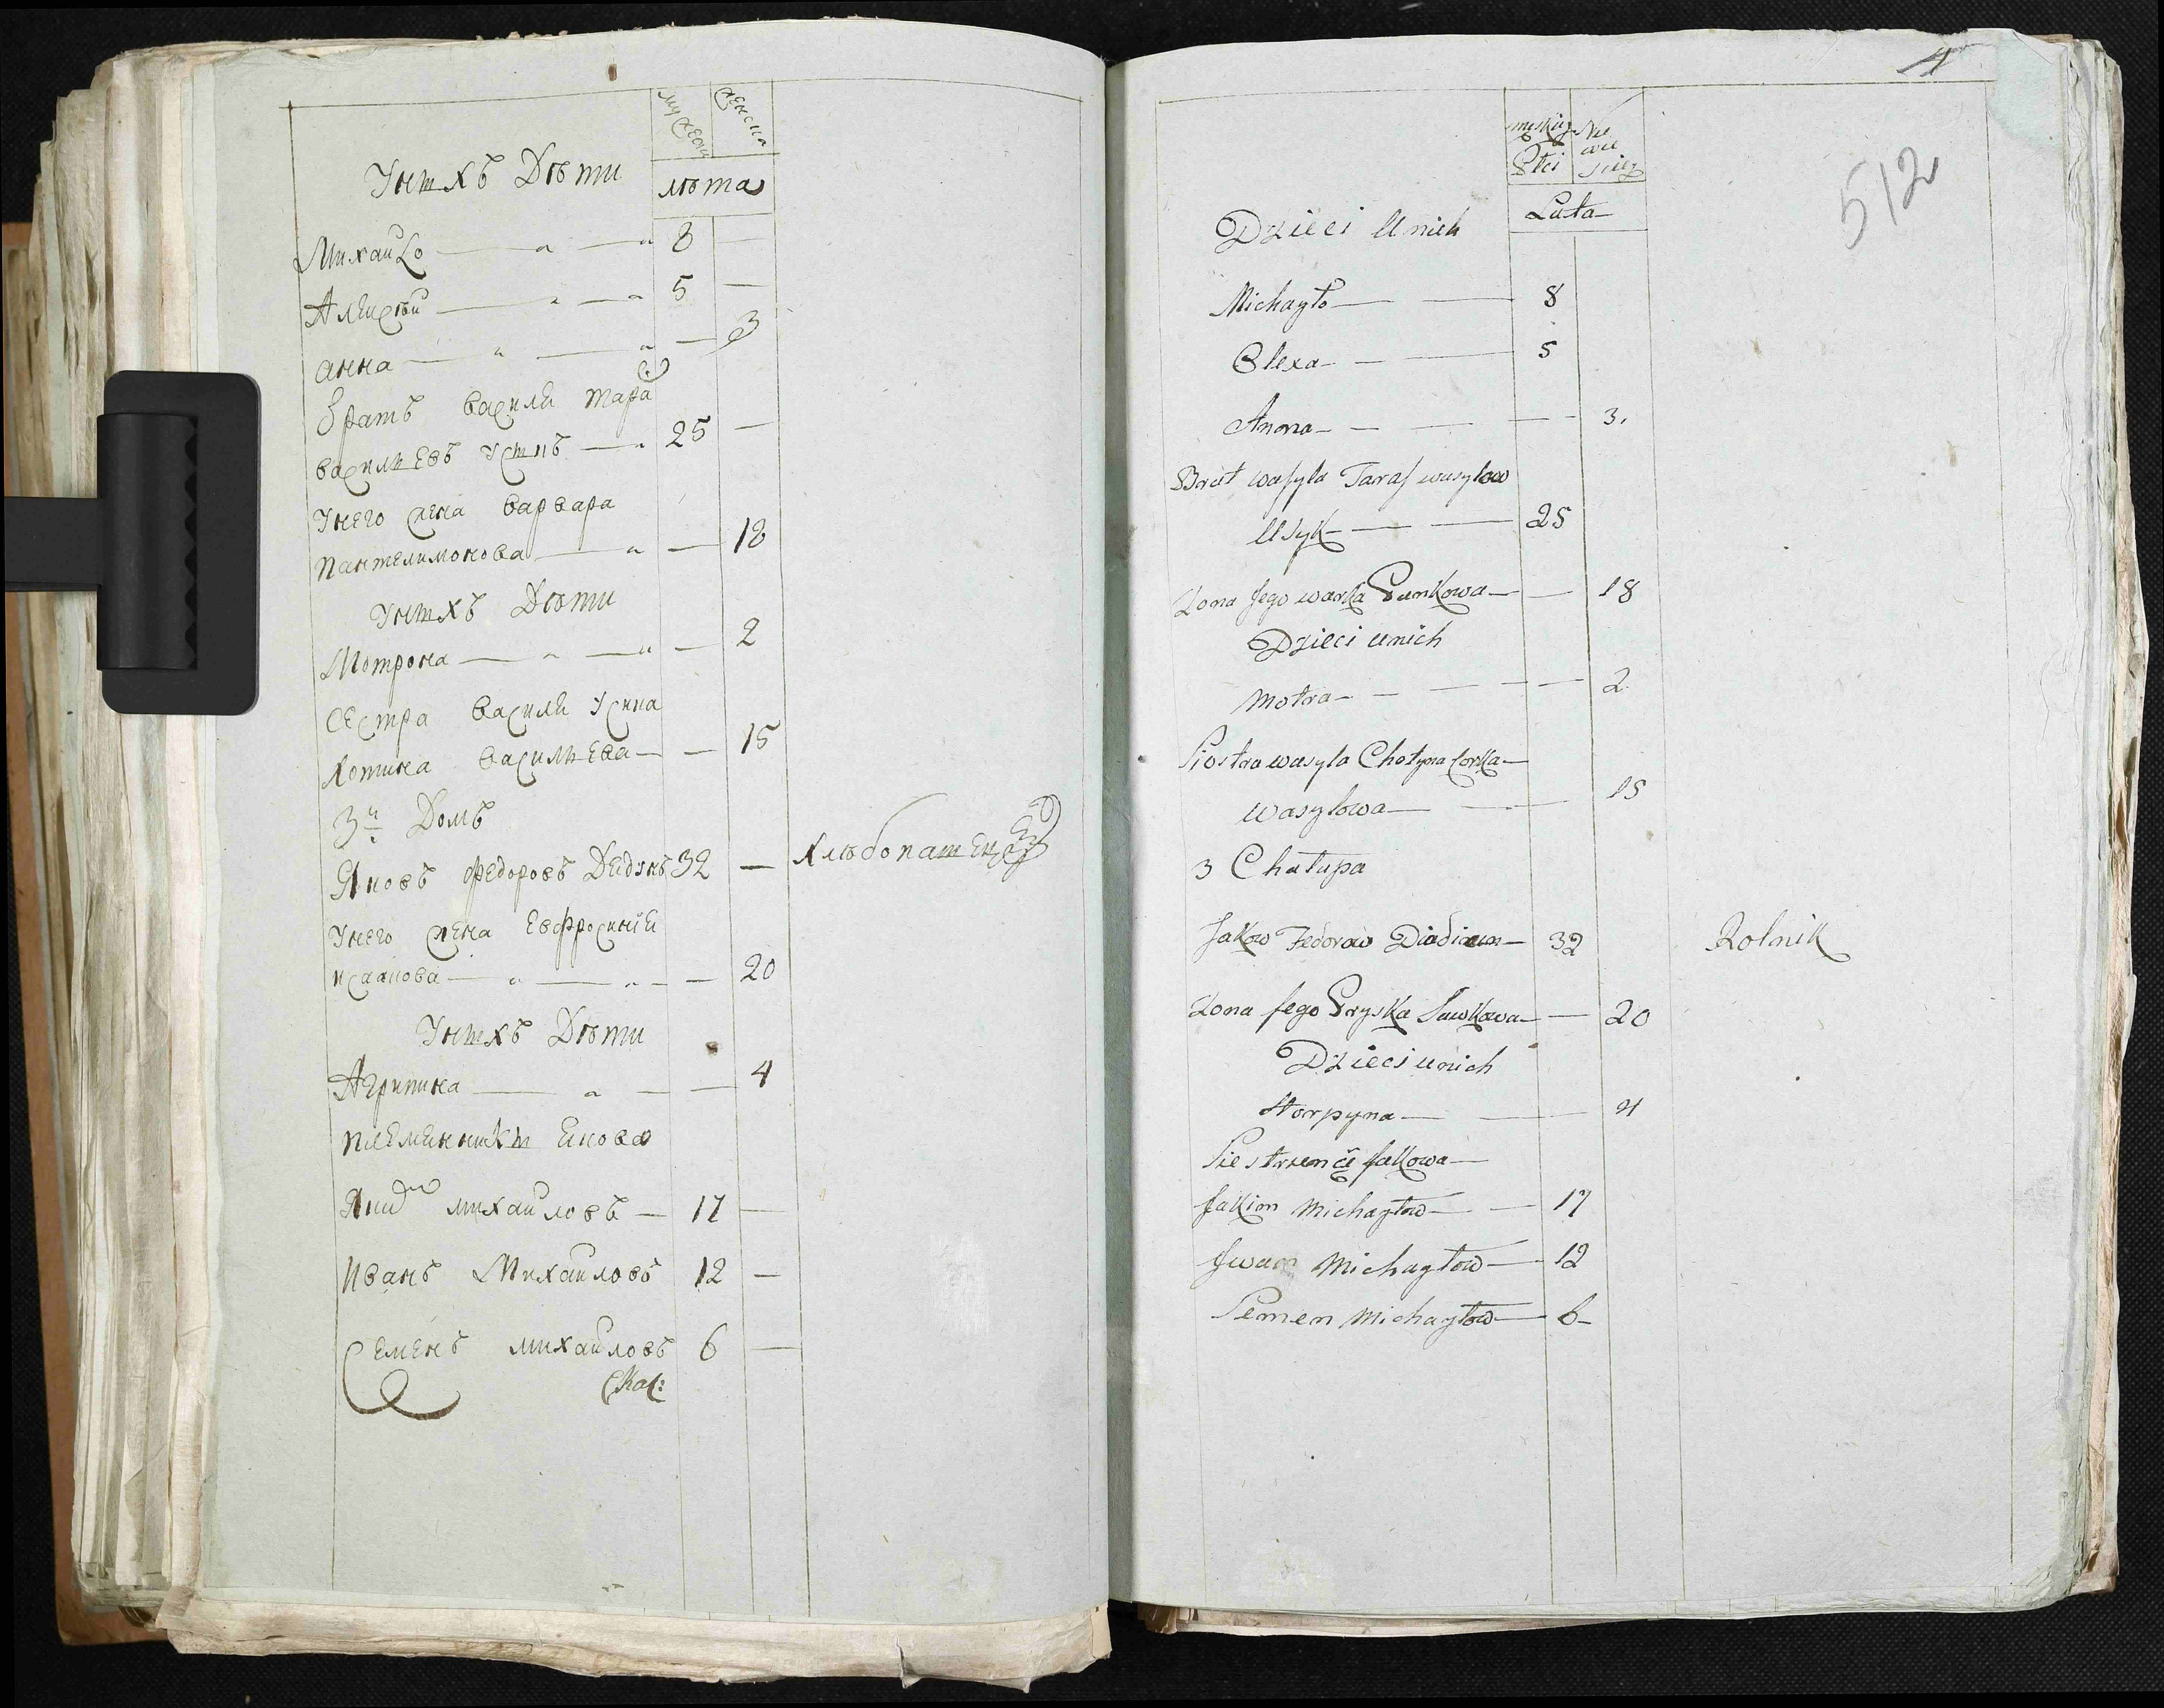 мужеск женска
Унихъ Дѣти лѣта
Михайло 8 —
Алексѣй 5 —
анна — 3
Братъ василя тарас
васильевъ усикъ 25 —
Унего жена варвара
пантелимонова — 18
Унихъ Дѣти
Мотрона — 2
Сестра василя усика
хотина васильева — 15
3й Домъ
Яковъ федоровъ Дедюнъ 32 — хлѣбопашецъ
Унего жена евфросинія
исаакова — 20
Унихъ Дѣти
Агрипина — 4
племенники якова
Яким михайловъ — 17 —
Иванъ Михайловъ 12 —
Семенъ михайловъ 6 —
4
512
męskiey Nie wie sciey
Płci
Lata
Dzieci Unich
Michayło — 8
Olexa — 5
Anna — 3.
Brat wasyla Taras wasylow
Usyk — 25
Zona Jego warka Pankowa — 18
Dzieci unich
Motra — 2
Siostra wasyla Chotyna Corka
wasylowa — 15
3 Chałupa
Jakow Fedorow Diadiun — 32 Rolnik
Zona Jego Pryska Sawkowa — 20
Dzieci unich
Horpyna — 4
Siestrzency Jakowa
Jakim Michayłow — 17
Jwan Michayłow — 12
Semen Michayłow — 6